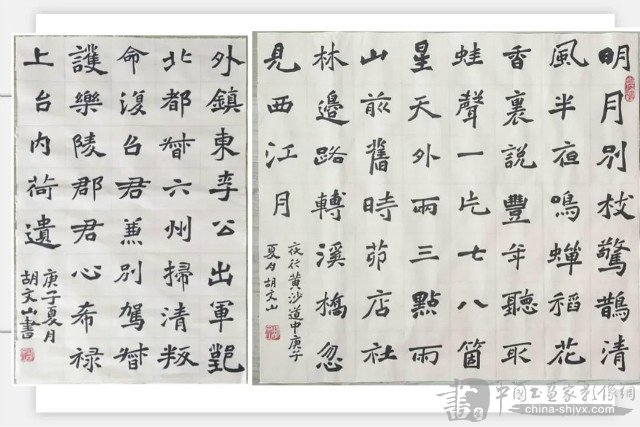 明月别枝驚鵲清
風半夜鳴蟬稻花
香裏説豐年聽取
蛙聲一片七八箇
星天外兩三點雨
山前舊時茆店社
林邊路轉溪橋忽
見西江月
夜行黄沙道中庚子
夏月胡文山
外鎮東李公出軍鄴
北都督六州掃清叛
命復召君兼别駕督
護樂陵郡君心希禄
上台内荷遺
庚子夏月
胡文山書
中國书画家影像網
china-shjyx.com